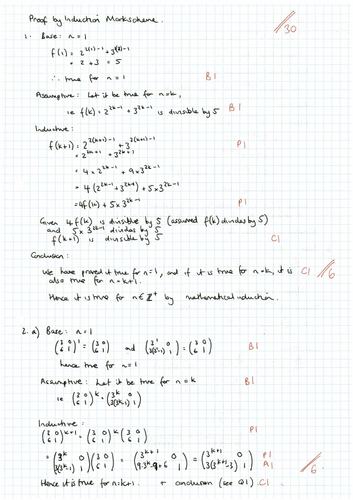 Proof by Induction Markscheme.
/30
1. Base: n = 1
f(1) = 2^(2(1)-1) + 3^(2(1)-1)
= 2 + 3 = 5
∴ true for n = 1 B1
Assumptive: Let it be true for n = k,
ie f(k) = 2^(2k-1) + 3^(2k-1) is divisible by 5 B1
Inductive:
f(k+1) = 2^(2(k+1)-1) + 3^(2(k+1)-1) P1
= 2^(2k+1) + 3^(2k+1)
= 4 × 2^(2k-1) + 9 × 3^(2k-1)
= 4(2^(2k-1) + 3^(2k-1)) + 5 × 3^(2k-1)
= 4f(k) + 5 × 3^(2k-1) P1
Given 4f(k) is divisible by 5 (assumed f(k) divides by 5)
and 5 × 3^(2k-1) divides by 5
f(k+1) is divisible by 5 C1
Conclusion:
We have proved it true for n = 1, and if it is true for n = k, it is C1 /6
also true for n = k+1.
Hence it is true for n ∈ Z⁺ by mathematical induction.
2. a) Base: n = 1
(3 0; 6 1)^1 = (3 0; 6 1) and (3^1 0; 3(3^1-1) 1) = (3 0; 6 1) B1
hence true for n = 1
Assumptive: Let it be true for n = k B1
ie (3 0; 6 1)^k = (3^k 0; 3(3^k-1) 1)
Inductive:
(3 0; 6 1)^(k+1) = (3 0; 6 1)^k (3 0; 6 1) P1
= (3^k 0; 3(3^k-1) 1)(3 0; 6 1) = (3^(k+1) 0; 9·3^k-9+6 1) = (3^(k+1) 0; 3(3^(k+1)-3) 1) P1
A1
Hence it is true for n=k+1. + conclusion (see Q1) C1 /6